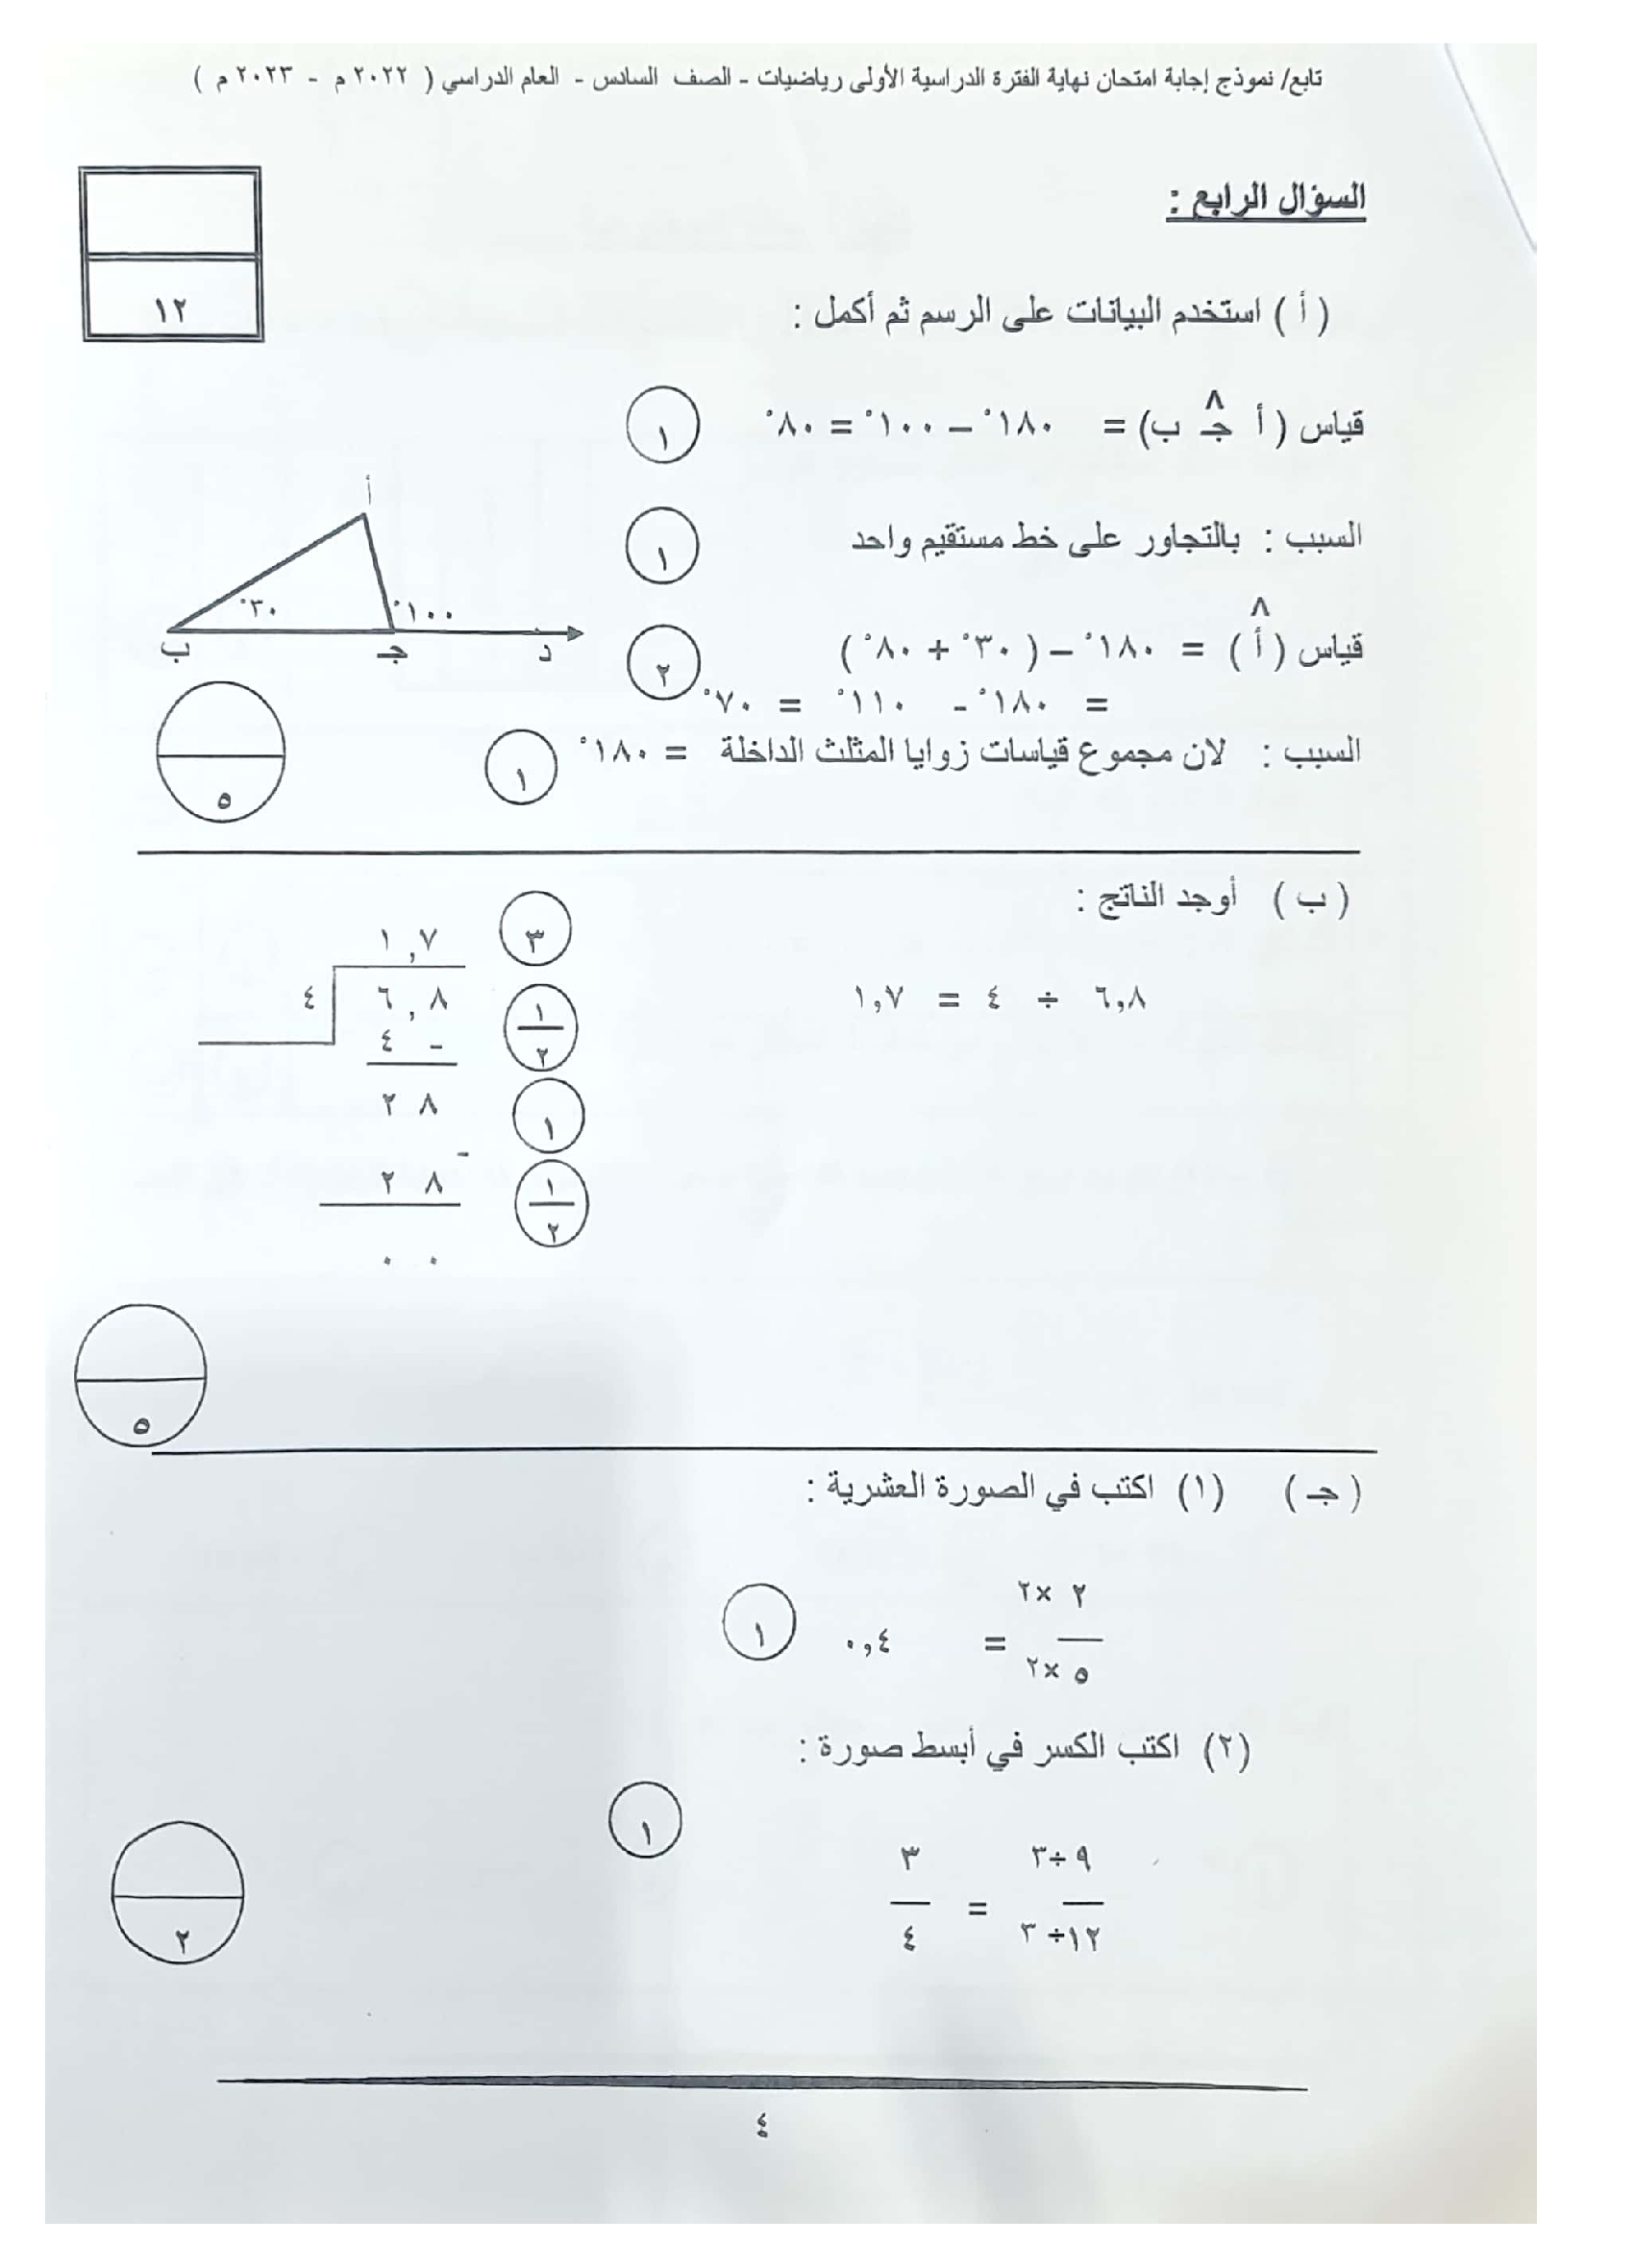 تابع/ نموذج إجابة امتحان نهاية الفترة الدراسية الأولى رياضيات - الصف السادس - العام الدراسي ( ٢٠٢٢ م - ٢٠٢٣ م )
السؤال الرابع :
١٢
( أ ) استخدم البيانات على الرسم ثم أكمل :
قياس ( أ جـ ب) = ١٨٠° – ١٠٠° = ٨٠°
١
السبب : بالتجاور على خط مستقيم واحد
١
قياس ( أ ) = ١٨٠° – ( ٣٠° + ٨٠° )
٢
= ١٨٠° - ١١٠° = ٧٠°
السبب : لان مجموع قياسات زوايا المثلث الداخلة = ١٨٠°
١
أ
٣٠°
١٠٠°
ب جـ د
٥
( ب ) أوجد الناتج :
٦,٨ ÷ ٤ = ١,٧
١,٧
٣
٤
٦,٨
١/٢
٤ -
٢٨
١
-
٢٨
١/٢
٠٠
٥
( جـ ) (١) اكتب في الصورة العشرية :
٢ ×٢
— = ٠,٤
٥ ×٢
١
(٢) اكتب الكسر في أبسط صورة :
١
٩ ÷٣ ٣
— = —
١٢÷ ٣ ٤
٢
٤